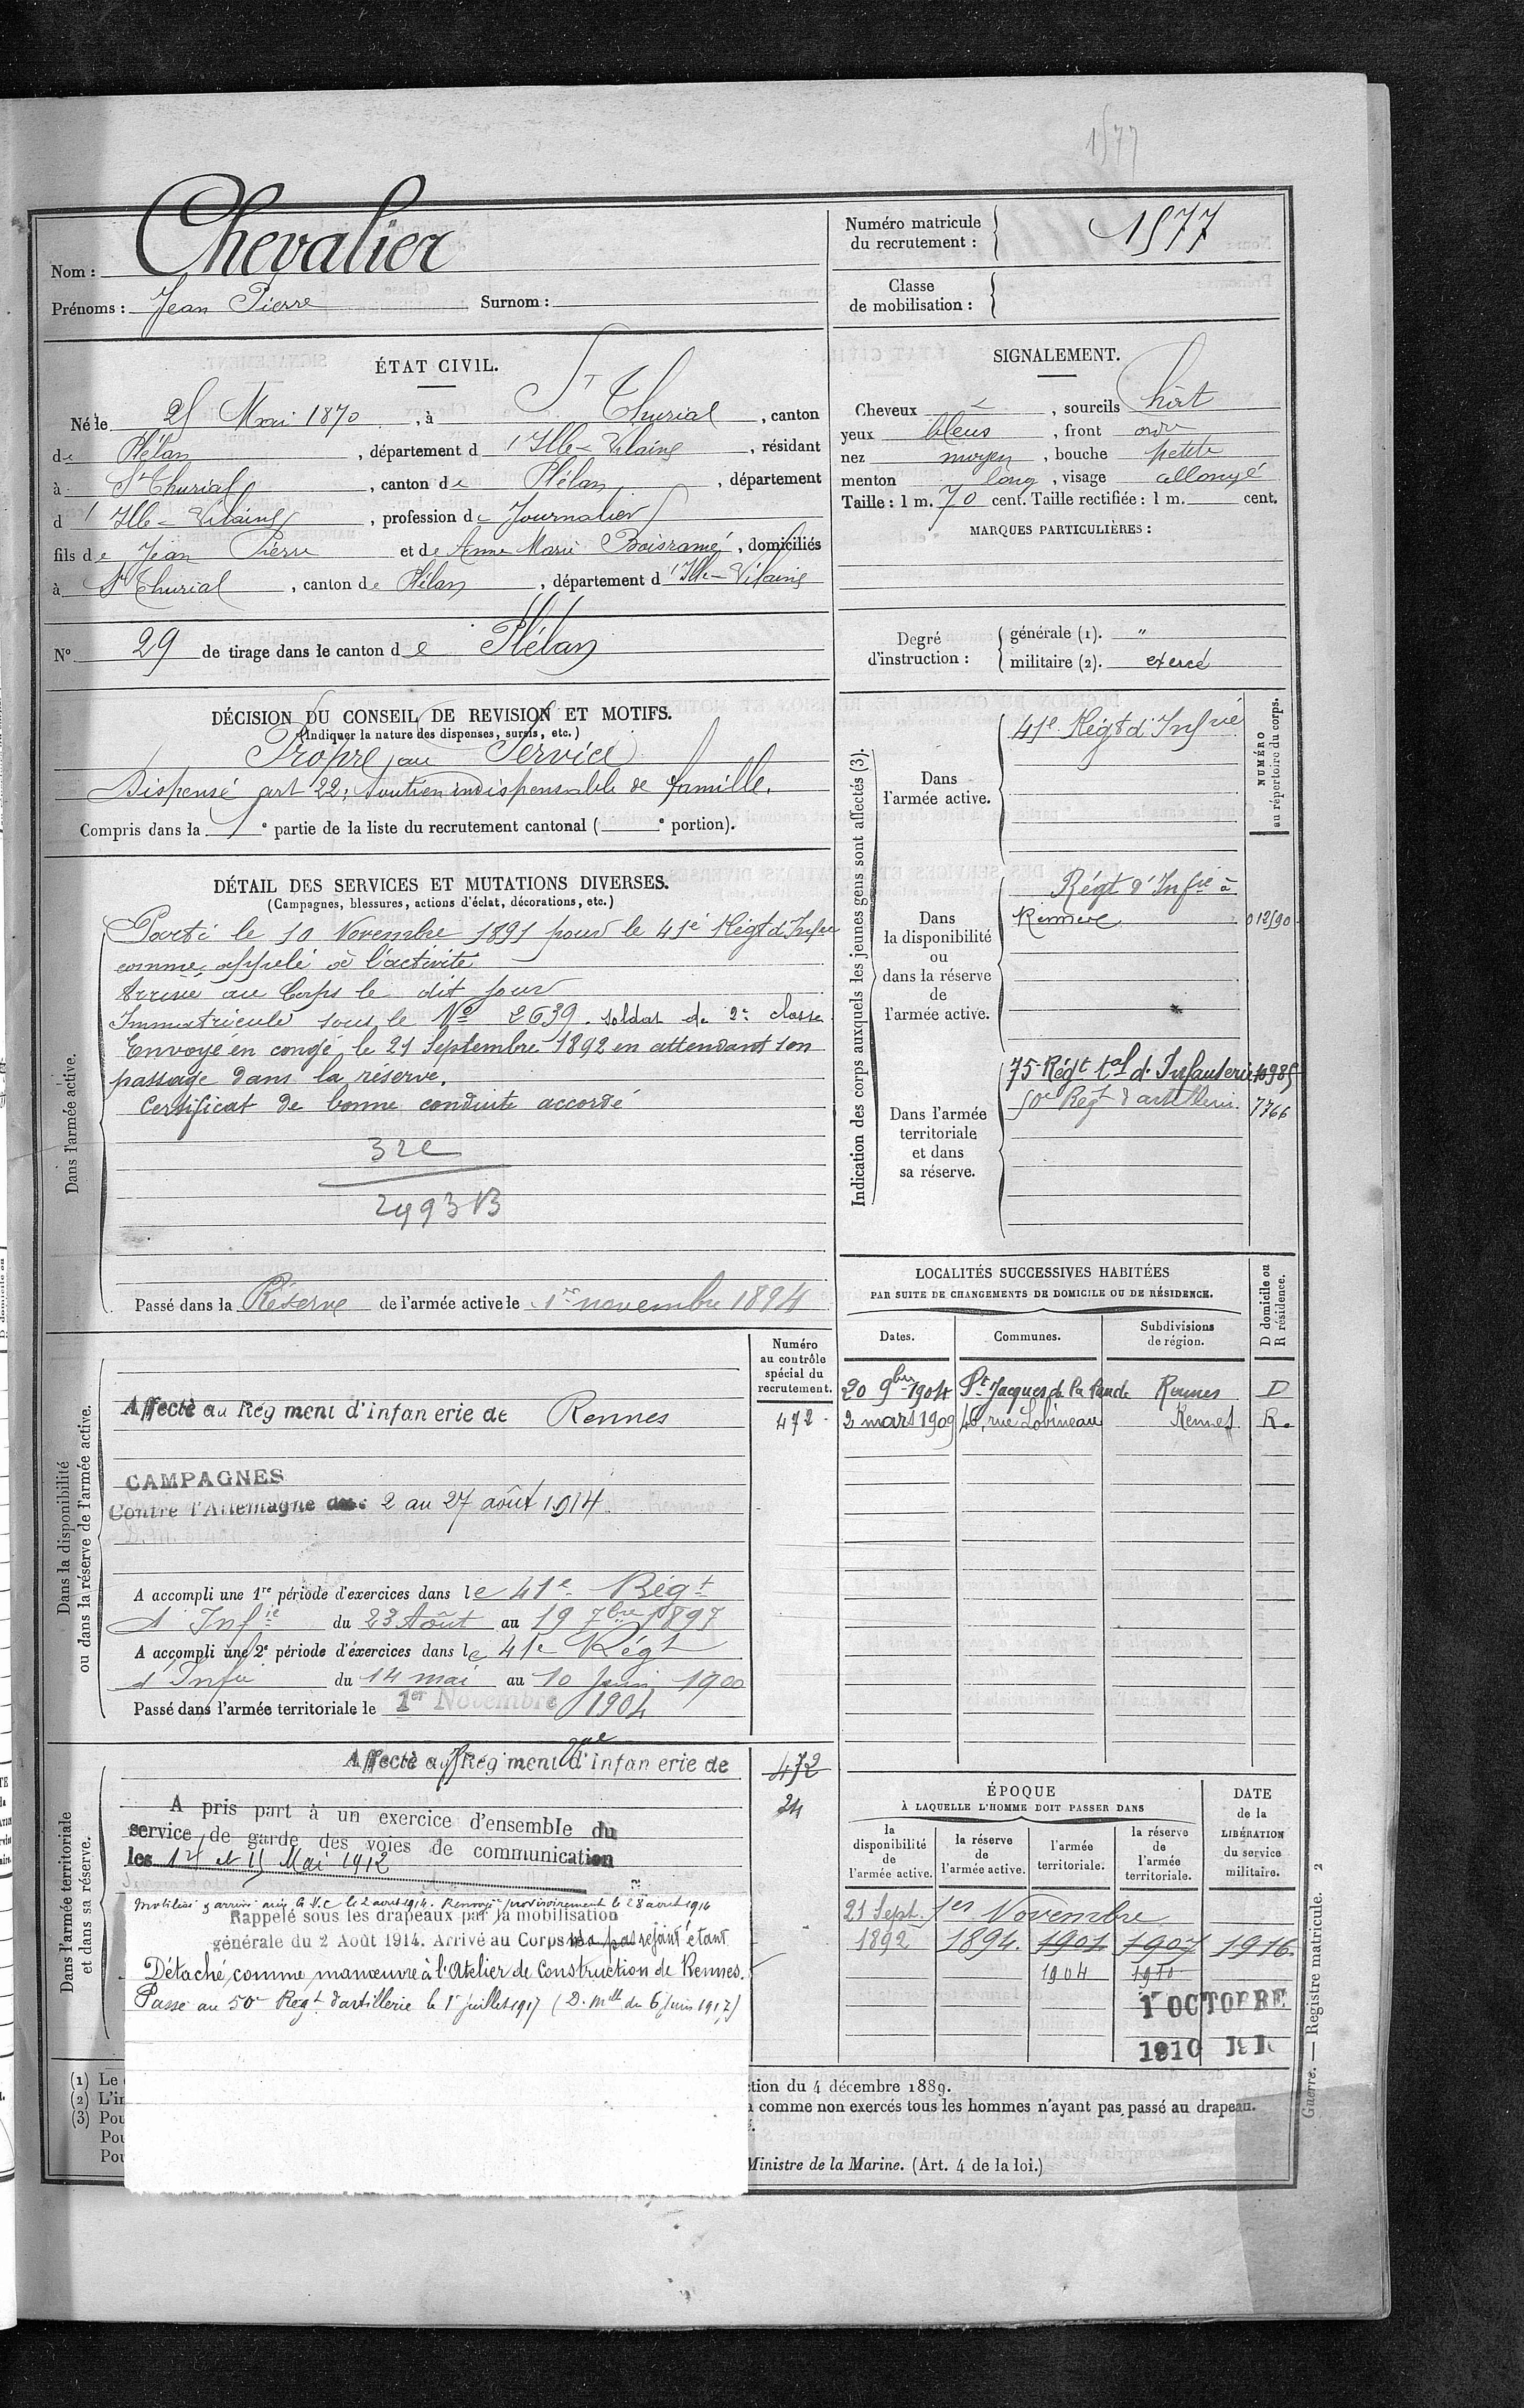 1577
Nom : Chevalier
Prénoms : Jean Pierre Surnom :
Numéro matricule du recrutement : 1577
Classe de mobilisation :
ÉTAT CIVIL.
Né le 25 Mai 1870, à St Thurial, canton
de Plélan, département d'Ille-Vilaine, résidant
à St Thurial, canton de Plélan, département
d'Ille-Vilaine, profession de Journalier
fils de Jean Pierre et de Anne Marie Boisramé, domiciliés
à St Thurial, canton de Plélan, département d'Ille-Vilaine
No 29 de tirage dans le canton de Plélan
SIGNALEMENT.
Cheveux , sourcils chat
yeux bleus, front ordre
nez moyen, bouche petite
menton long, visage allongé
Taille : 1 m. 70 cent. Taille rectifiée : 1 m. cent.
MARQUES PARTICULIÈRES :
Degré d'instruction : générale (1). "
militaire (2). exercé
DÉCISION DU CONSEIL DE REVISION ET MOTIFS.
(Indiquer la nature des dispenses, sursis, etc.)
Propre au Service
Dispensé art 22; soutien indispensable de famille.
Compris dans la 1e partie de la liste du recrutement cantonal ( e portion).
DÉTAIL DES SERVICES ET MUTATIONS DIVERSES.
(Campagnes, blessures, actions d'éclat, décorations, etc.)
Dans l'armée active.
Parti le 10 Novembre 1891 pour le 41e Régt d'Infie
comme appelé à l'activité
Arrivé au Corps le dit jour
Immatriculé sous le No 2639. soldat de 2e classe
Envoyé en congé le 21 Septembre 1892 en attendant son
passage dans la réserve.
Certificat de bonne conduite accordé
32e
2993B
Passé dans la Réserve de l'armée active le 1er novembre 1894
Indication des corps auxquels les jeunes gens sont affectés (3).
NUMÉRO au répertoire du corps.
Dans l'armée active.
41e Régt d'Infrie
Dans la disponibilité ou dans la réserve de l'armée active.
Régt d'Infie à
Rennes 012590
Dans l'armée territoriale et dans sa réserve.
75e Régt tal d'Infanterie 10985
50e Régt d'artillerie. 7766
LOCALITÉS SUCCESSIVES HABITÉES
PAR SUITE DE CHANGEMENTS DE DOMICILE OU DE RÉSIDENCE.
Dates. Communes. Subdivisions de région. D domicile ou R résidence.
20 9bre 1904 St Jacques de la Lande Rennes D
2 mars 1909 46, rue Lobineau Rennes R.
Dans la disponibilité ou dans la réserve de l'armée active.
Numéro au contrôle spécial du recrutement.
Affecté au Régiment d'infanterie de Rennes 472
CAMPAGNES
Contre l'Allemagne du 2 au 27 août 1914
A accompli une 1re période d'exercices dans le 41e Régt
d'Infie du 23 Août au 19 7bre 1897
A accompli une 2e période d'exercices dans le 41e Régt
d'Infie du 14 mai au 10 Juin 1900
Passé dans l'armée territoriale le 1er Novembre 1904
Dans l'armée territoriale et dans sa réserve.
Affecté au Régiment d'infanterie de 472
24
A pris part à un exercice d'ensemble du
service de garde des voies de communication
les 14 et 15 Mai 1912
Mobilisé & arrivé aux G.V.C le 2 aout 1914. Renvoyé provisoirement le 28 aout 1914
Rappelé sous les drapeaux par la mobilisation
générale du 2 Août 1914. Arrivé au Corps n'a pas rejoint étant
Détaché comme manœuvre à l'Atelier de Construction de Rennes.
Passé au 50e Régt d'artillerie le 1er juillet 1917 (D. Mlle du 6 Juin 1917)
ÉPOQUE
À LAQUELLE L'HOMME DOIT PASSER DANS
la disponibilité de l'armée active. la réserve de l'armée active. l'armée territoriale. la réserve de l'armée territoriale.
DATE de la LIBÉRATION du service militaire.
21 Sept. 1er Novembre
1892 1894. 1901 1907 1916
1904 1910
1er OCTOBRE
1910
(1) Le
(2) L'in
(3) Pou
Pou
Pou
tion du 4 décembre 1889.
comme non exercés tous les hommes n'ayant pas passé au drapeau.
Ministre de la Marine. (Art. 4 de la loi.)
Guerre. — Registre matricule. 2